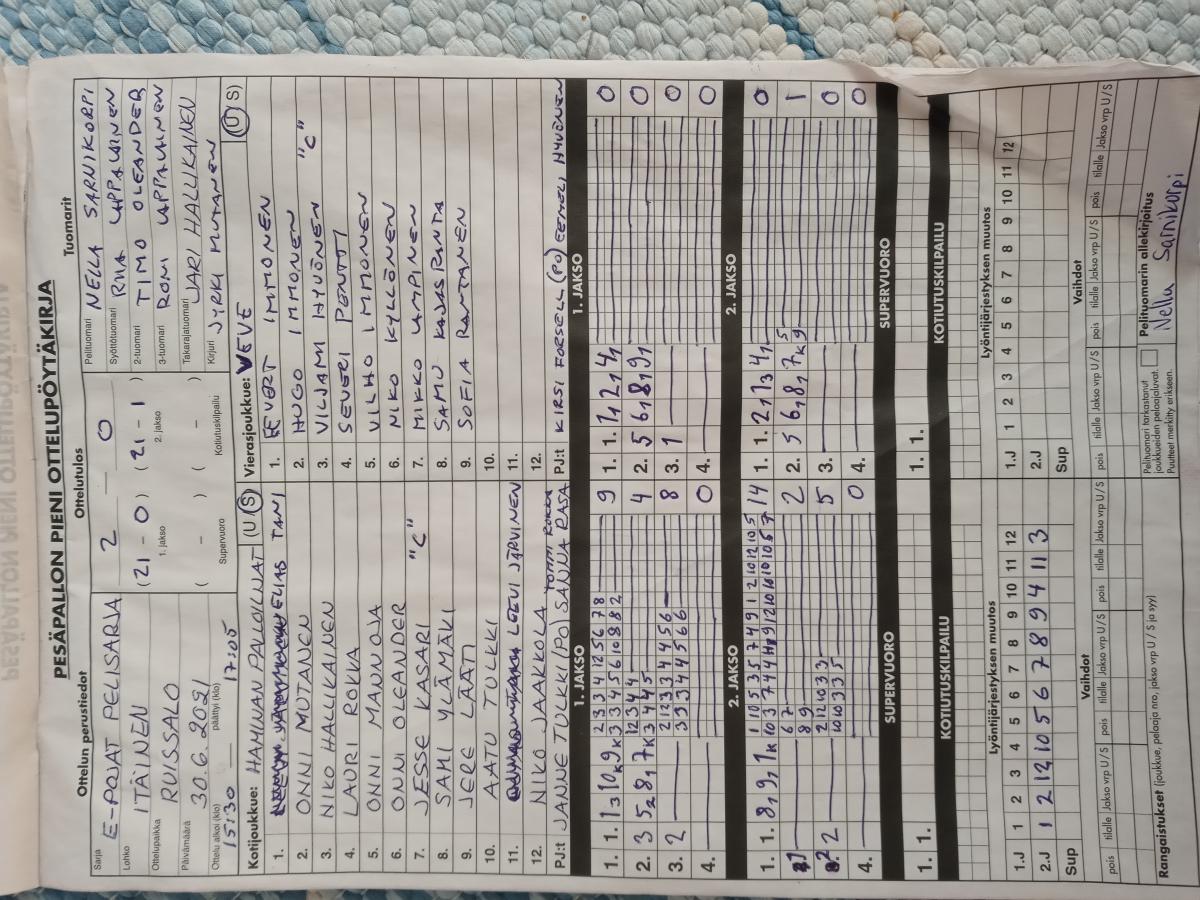 PESÄPALLON PIENI OTTELUPÖYTÄKIRJA
Ottelun perustiedot
Sarja E-POJAT PELISARJA
Lohko ITÄINEN
Ottelupaikka RUISSALO
Päivämäärä 30.6.2021
Ottelu alkoi (klo) 15:30 päättyi (klo) 17:05
Ottelutulos
2 0
(21 - 0) (21 - 1)
1. jakso 2. jakso
( - ) ( - )
Supervuoro Kotiutuskilpailu
Tuomarit
Pelituomari NELLA SARNIKORPI
Syöttötuomari RIIA LAPPALAINEN
2-tuomari TIMO OLEANDER
3-tuomari RONI LAPPALAINEN
Takarajatuomari JARI HALLIKAINEN
Kirjuri JYRKI MUTANEN
Kotijoukkue: HAMINAN PALLOILIJAT (U S)
1. ELIAS TANI
2. ONNI MUTANEN
3. NIKO HALLIKAINEN
4. LAURI ROKKA
5. ONNI MAUNOJA
6. ONNI OLEANDER
7. JESSE KASARI "C"
8. SAMI YLÄMÄKI
9. JERE LÄÄTI
10. AATU TULKKI
11. LEEVI JÄRVINEN
12. NIKO JAAKKOLA
PJ:t JANNE TULKKI (PO) SANNA RASA TOMMI ROKKA
Vierasjoukkue: VEVE (U S)
1. EVERT IMMONEN
2. HUGO IMMONEN "C"
3. VILJAMI HYVÖNEN
4. SEVERI PENTTI
5. VILHO IMMONEN
6. NIKO KYLLÖNEN
7. MIKKO LAMPINEN
8. SAMU KAJASRANTA
9. SOFIA RANTANEN
10.
11.
12.
PJ:t KIRSI FORSELL (PO) EEMELI HYVÖNEN
1. JAKSO
1. 1. 9
2. 4
3. 2 8
4. 0
1. JAKSO
1. 1. 0
2. 5 0
3. 1 0
4. 0
2. JAKSO
1. 1. 14
2
2 5
4. 0
2. JAKSO
1. 1. 0
2. 5 1
3. 0
4. 0
SUPERVUORO
1. 1.
SUPERVUORO
1. 1.
KOTIUTUSKILPAILU
KOTIUTUSKILPAILU
Lyöntijärjestyksen muutos
1.J 1 2 3 4 5 6 7 8 9 10 11 12
2.J 1 2 12 10 5 6 7 8 9 4 11 3
Sup
Lyöntijärjestyksen muutos
1.J 1 2 3 4 5 6 7 8 9 10 11 12
2.J
Sup
Vaihdot
pois tilalle Jakso vrp U/S pois tilalle Jakso vrp U/S pois tilalle Jakso vrp U/S
Vaihdot
pois tilalle Jakso vrp U/S pois tilalle Jakso vrp U/S pois tilalle Jakso vrp U/S
Rangaistukset (joukkue, pelaaja nro, jakso vrp U / S ja syy)
Pelituomari tarkastanut
joukkueiden pelaajaluvat.
Puutteet merkitty erikseen.
Pelituomarin allekirjoitus
Nella Sarnikorpi